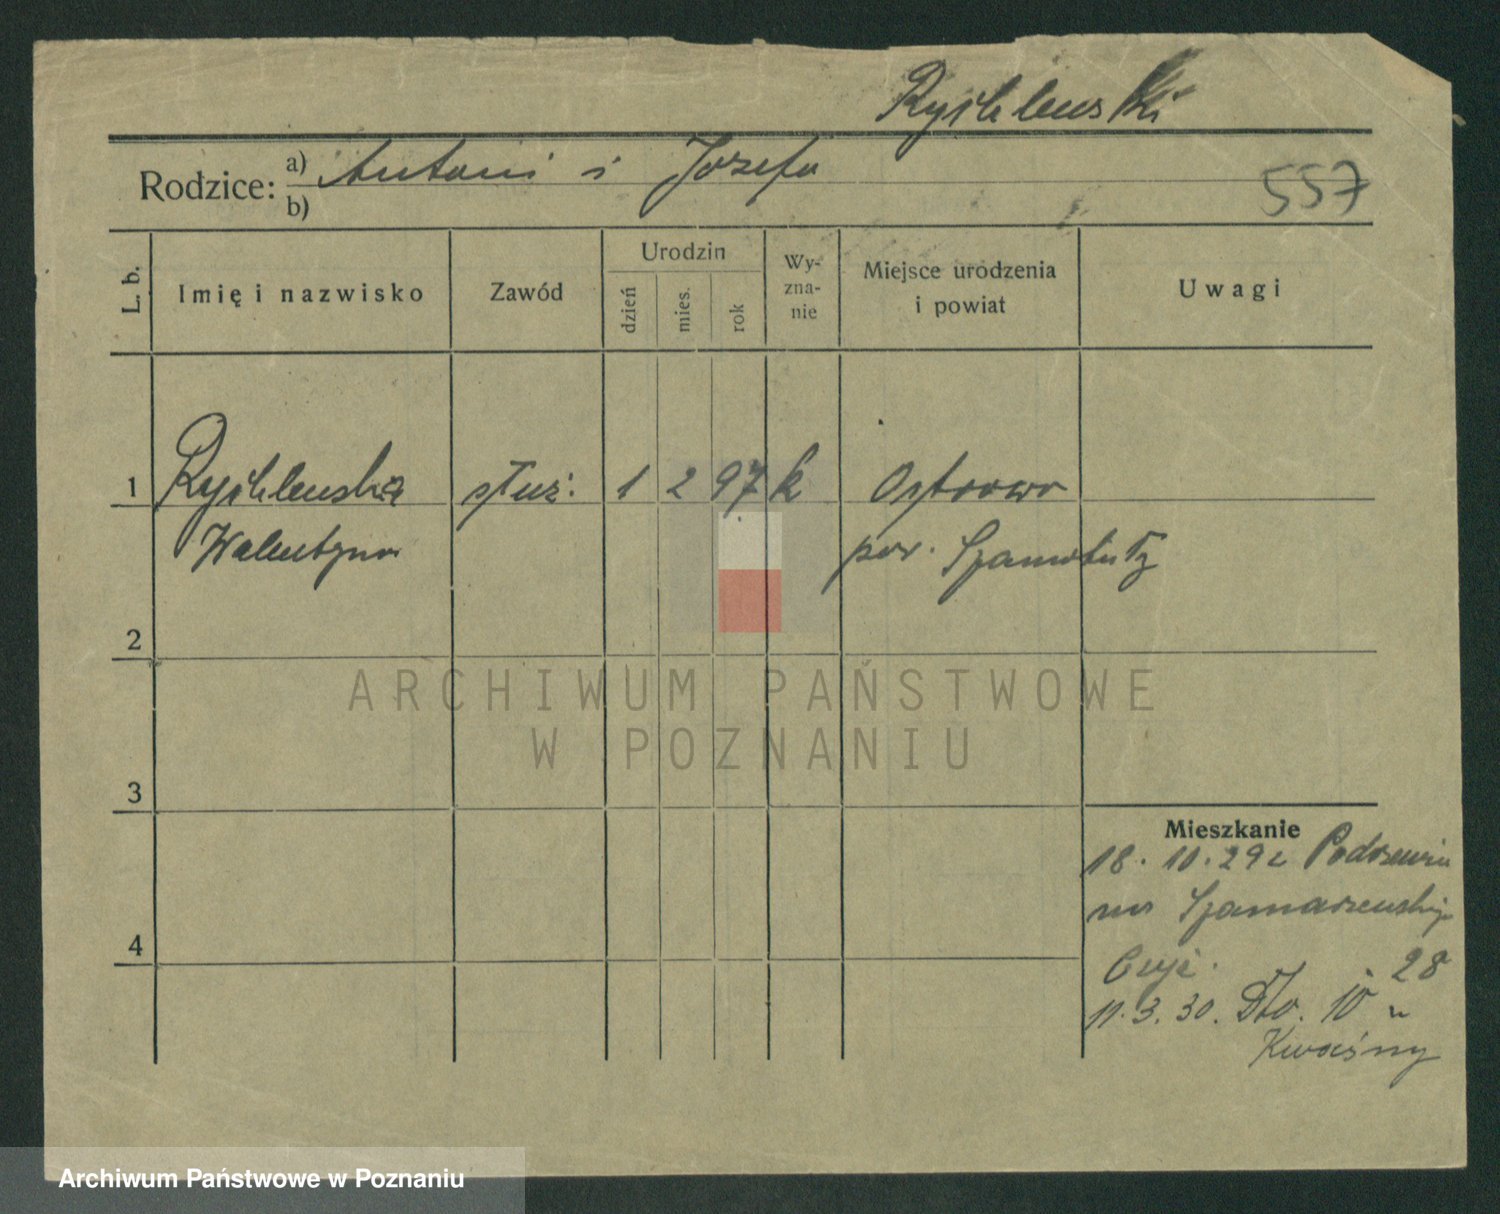 Rychlewski
Rodzice: a) Antoni i Józefa
b)
557
L. b.
Imię i nazwisko
Zawód
Urodzin
dzień
mies.
rok
Wy-
zna-
nie
Miejsce urodzenia
i powiat
Uwagi
1 Rychlewska służ. 1 2 97 k Ostrowo
Walentyna pow. Szamotuły
2
ARCHIWUM PAŃSTWOWE
W POZNANIU
3
Mieszkanie
18. 10. 29 z
4
28
11. 3. 30. Dto. 10 u
Kwaśny
Archiwum Państwowe w Poznaniu